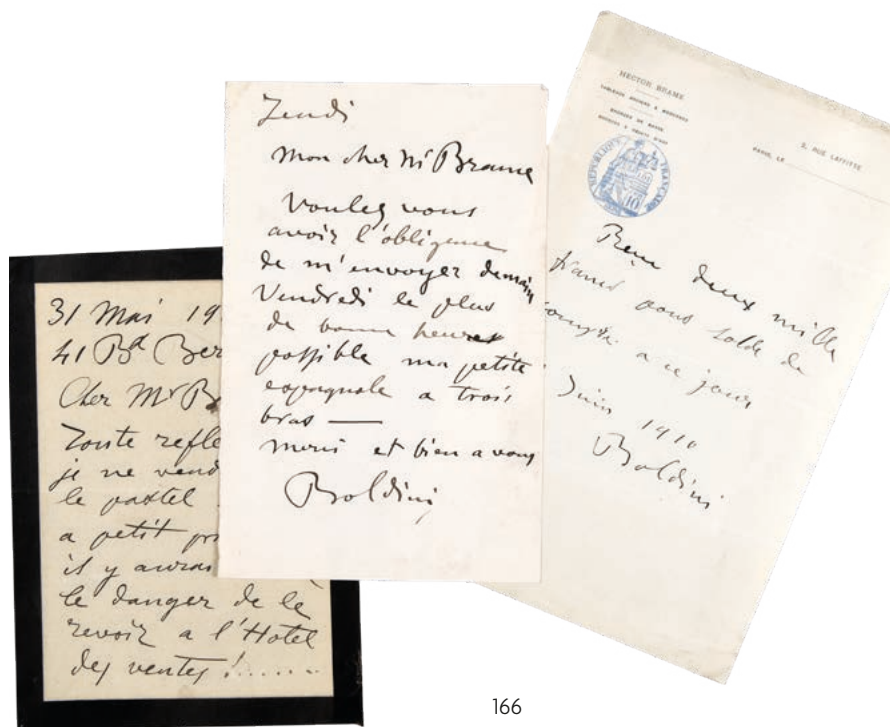 31 Mai 19
41 Bd Ber
Cher Mr B
Toute refle
je ne vend
le pastel
a petit pri
il y aurai
le danger de le
revoir a l'Hotel
des ventes !......
Jeudi
Mon cher Mr Brame
Voulez vous
avoir l'obligence
de m'envoyer demain
Vendredi le plus
de bonne heure
possible ma petite
espagnole a trois
bras —
merci et bien a vous
Boldini
HECTOR BRAME
TABLEAUX ANCIENS & MODERNES
BRONZES DE BARYE
2, RUE LAFFITTE
PARIS, LE
RÉPUBLIQUE FRANÇAISE
10
Reçu deux mille
francs pour solde de
compte a ce jour
Juin 1910
Boldini
166